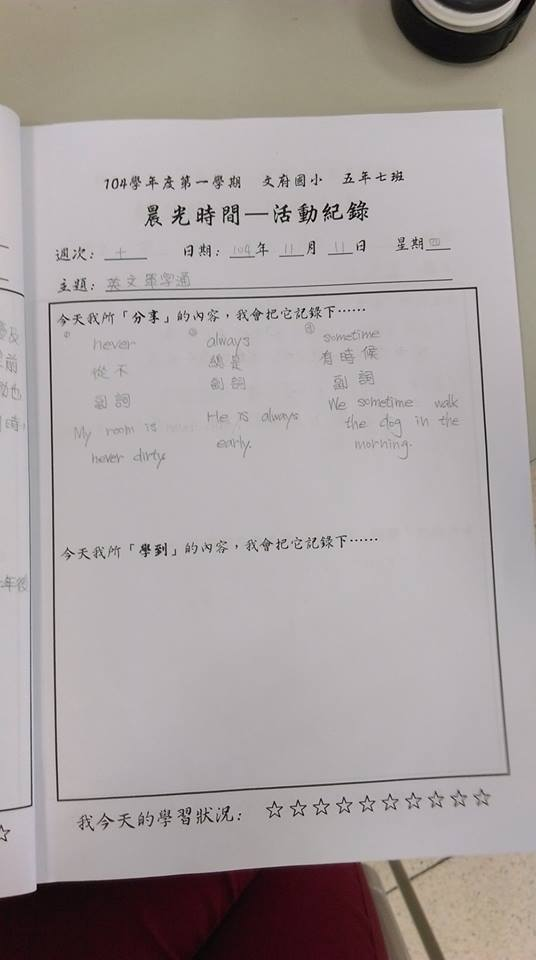 104學年度第一學期 文府國小 五年七班
晨光時間—活動紀錄
週次：十 日期：104年 11月 11日 星期四
主題：英文單字通
今天我所「分享」的內容，我會把它記錄下……
never
從不
副詞
My room is
never dirty.
always
總是
副詞
He is always
early.
sometime
有時候
副詞
We sometime walk
the dog in the
morning.
今天我所「學到」的內容，我會把它記錄下……
我今天的學習狀況：☆☆☆☆☆☆☆☆☆☆